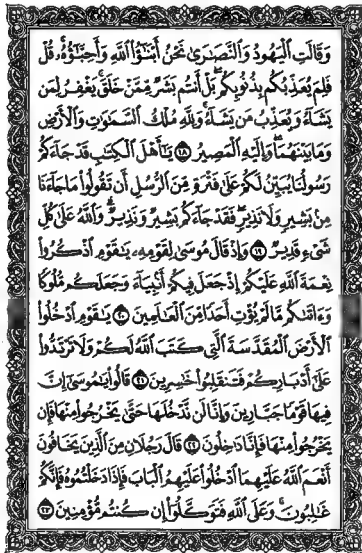 وَقَالَتِ ٱلْيَهُودُ وَٱلنَّصَـٰرَىٰ نَحْنُ أَبْنَـٰٓؤُا۟ ٱللَّهِ وَأَحِبَّـٰٓؤُهُۥ ۚ قُلْ
فَلِمَ يُعَذِّبُكُم بِذُنُوبِكُم ۖ بَلْ أَنتُم بَشَرٌ مِّمَّنْ خَلَقَ ۚ يَغْفِرُ لِمَن
يَشَآءُ وَيُعَذِّبُ مَن يَشَآءُ ۚ وَلِلَّهِ مُلْكُ ٱلسَّمَـٰوَٰتِ وَٱلْأَرْضِ
وَمَا بَيْنَهُمَا ۖ وَإِلَيْهِ ٱلْمَصِيرُ ١٨ يَـٰٓأَهْلَ ٱلْكِتَـٰبِ قَدْ جَآءَكُمْ
رَسُولُنَا يُبَيِّنُ لَكُمْ عَلَىٰ فَتْرَةٍ مِّنَ ٱلرُّسُلِ أَن تَقُولُوا۟ مَا جَآءَنَا
مِنۢ بَشِيرٍ وَلَا نَذِيرٍ ۖ فَقَدْ جَآءَكُم بَشِيرٌ وَنَذِيرٌ ۗ وَٱللَّهُ عَلَىٰ كُلِّ
شَىْءٍ قَدِيرٌ ١٩ وَإِذْ قَالَ مُوسَىٰ لِقَوْمِهِۦ يَـٰقَوْمِ ٱذْكُرُوا۟
نِعْمَةَ ٱللَّهِ عَلَيْكُمْ إِذْ جَعَلَ فِيكُمْ أَنۢبِيَآءَ وَجَعَلَكُم مُّلُوكًا
وَءَاتَىٰكُم مَّا لَمْ يُؤْتِ أَحَدًا مِّنَ ٱلْعَـٰلَمِينَ ٢٠ يَـٰقَوْمِ ٱدْخُلُوا۟
ٱلْأَرْضَ ٱلْمُقَدَّسَةَ ٱلَّتِى كَتَبَ ٱللَّهُ لَكُمْ وَلَا تَرْتَدُّوا۟
عَلَىٰٓ أَدْبَارِكُمْ فَتَنقَلِبُوا۟ خَـٰسِرِينَ ٢١ قَالُوا۟ يَـٰمُوسَىٰٓ إِنَّ
فِيهَا قَوْمًا جَبَّارِينَ وَإِنَّا لَن نَّدْخُلَهَا حَتَّىٰ يَخْرُجُوا۟ مِنْهَا فَإِن
يَخْرُجُوا۟ مِنْهَا فَإِنَّا دَٰخِلُونَ ٢٢ قَالَ رَجُلَانِ مِنَ ٱلَّذِينَ يَخَافُونَ
أَنْعَمَ ٱللَّهُ عَلَيْهِمَا ٱدْخُلُوا۟ عَلَيْهِمُ ٱلْبَابَ فَإِذَا دَخَلْتُمُوهُ فَإِنَّكُمْ
غَـٰلِبُونَ ۚ وَعَلَى ٱللَّهِ فَتَوَكَّلُوٓا۟ إِن كُنتُم مُّؤْمِنِينَ ٢٣